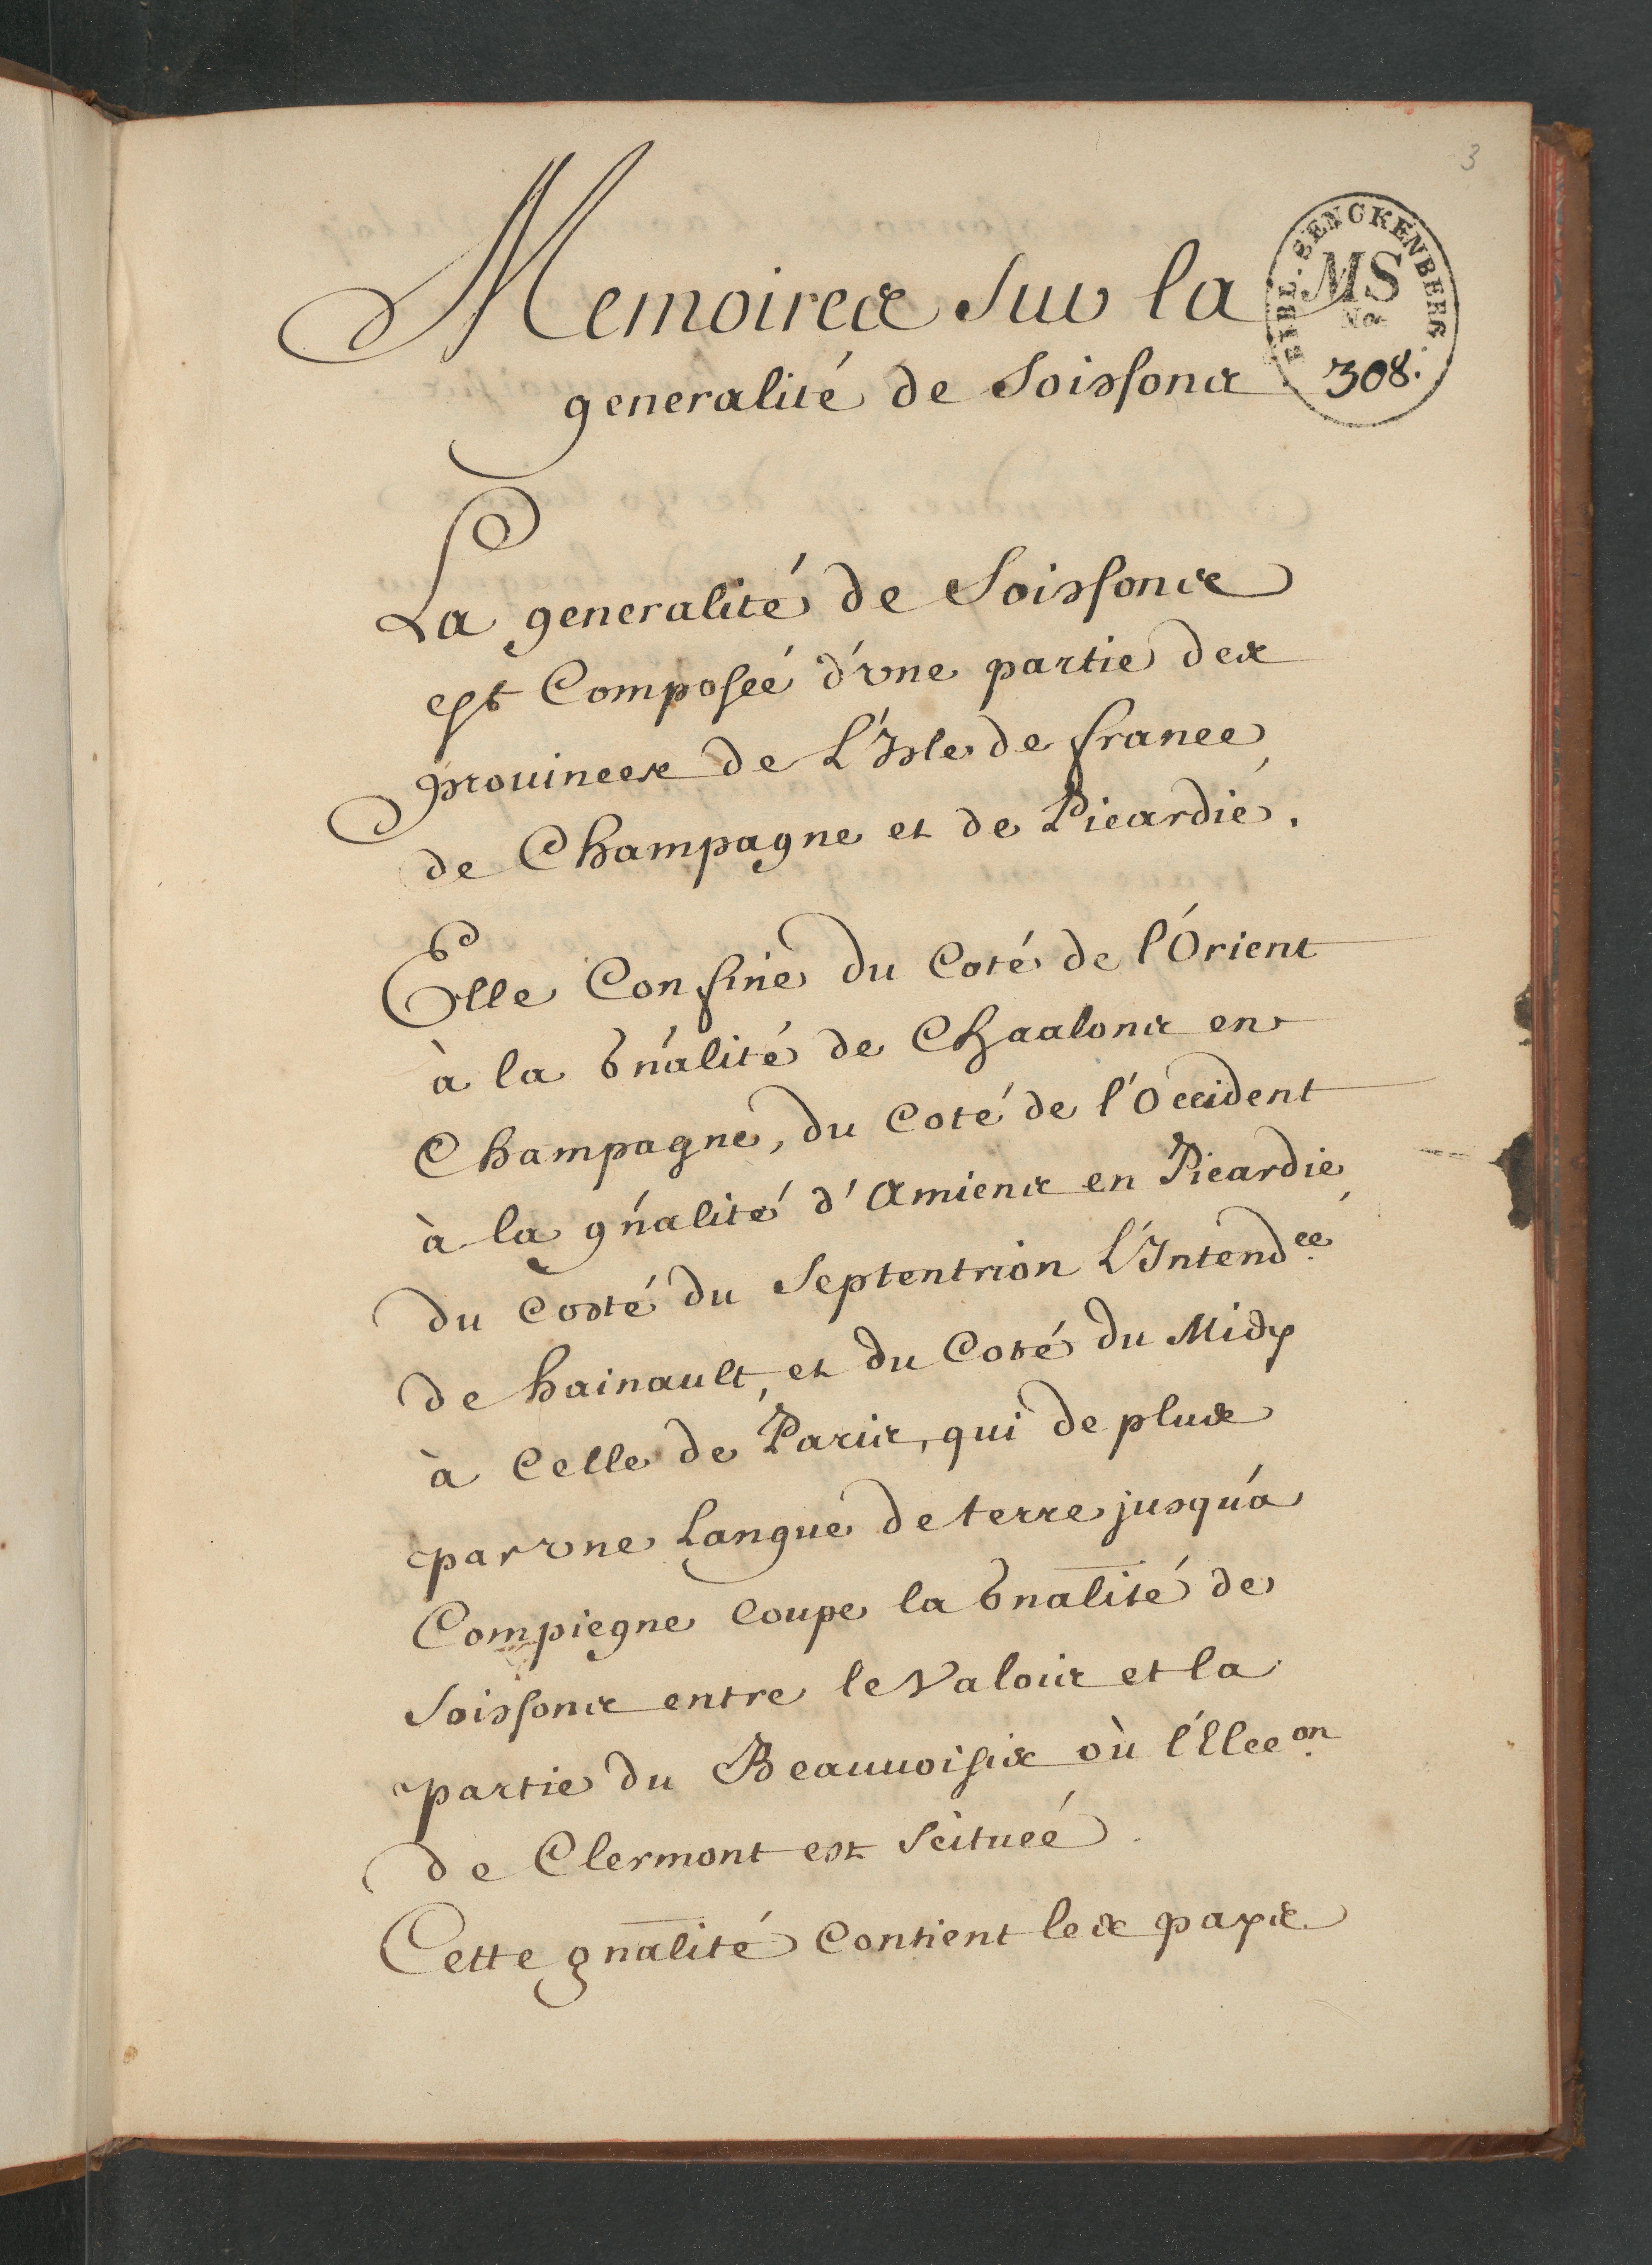 3
BIBL. SENCKENBERG.
MS
No
308.
Memoires sur la
generalité de Soissons
La generalité de Soissons
est Composeé d'vne partie des
prouinces de L'Isle de france,
de Champagne et de Picardie.
Elle Confine du Coté de l'Orient
à la Gńalité de Chaalons en
Champagne, du Coté de l'Occident
à la gńalité d'Amiens en Picardie,
du Costé du Septentrion L'Intend.ce
de hainault, et du Coté du Midy
à Celle de Paris, qui de plus
par vne Langue de terre jusqu'à
Compiegne Coupe la Gnalité de
Soissons entre le Valois et la
partie du Beauuoisis où l'Elec.on
de Clermont est Scitueé.
Cette gnalité Contient les pays